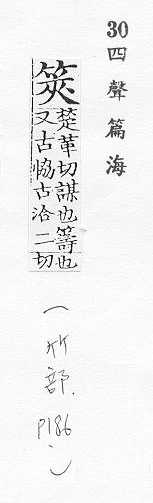 30四聲篇海
筴
楚革切謀也籌也
又古恊古洽二切
(竹部.P186.)